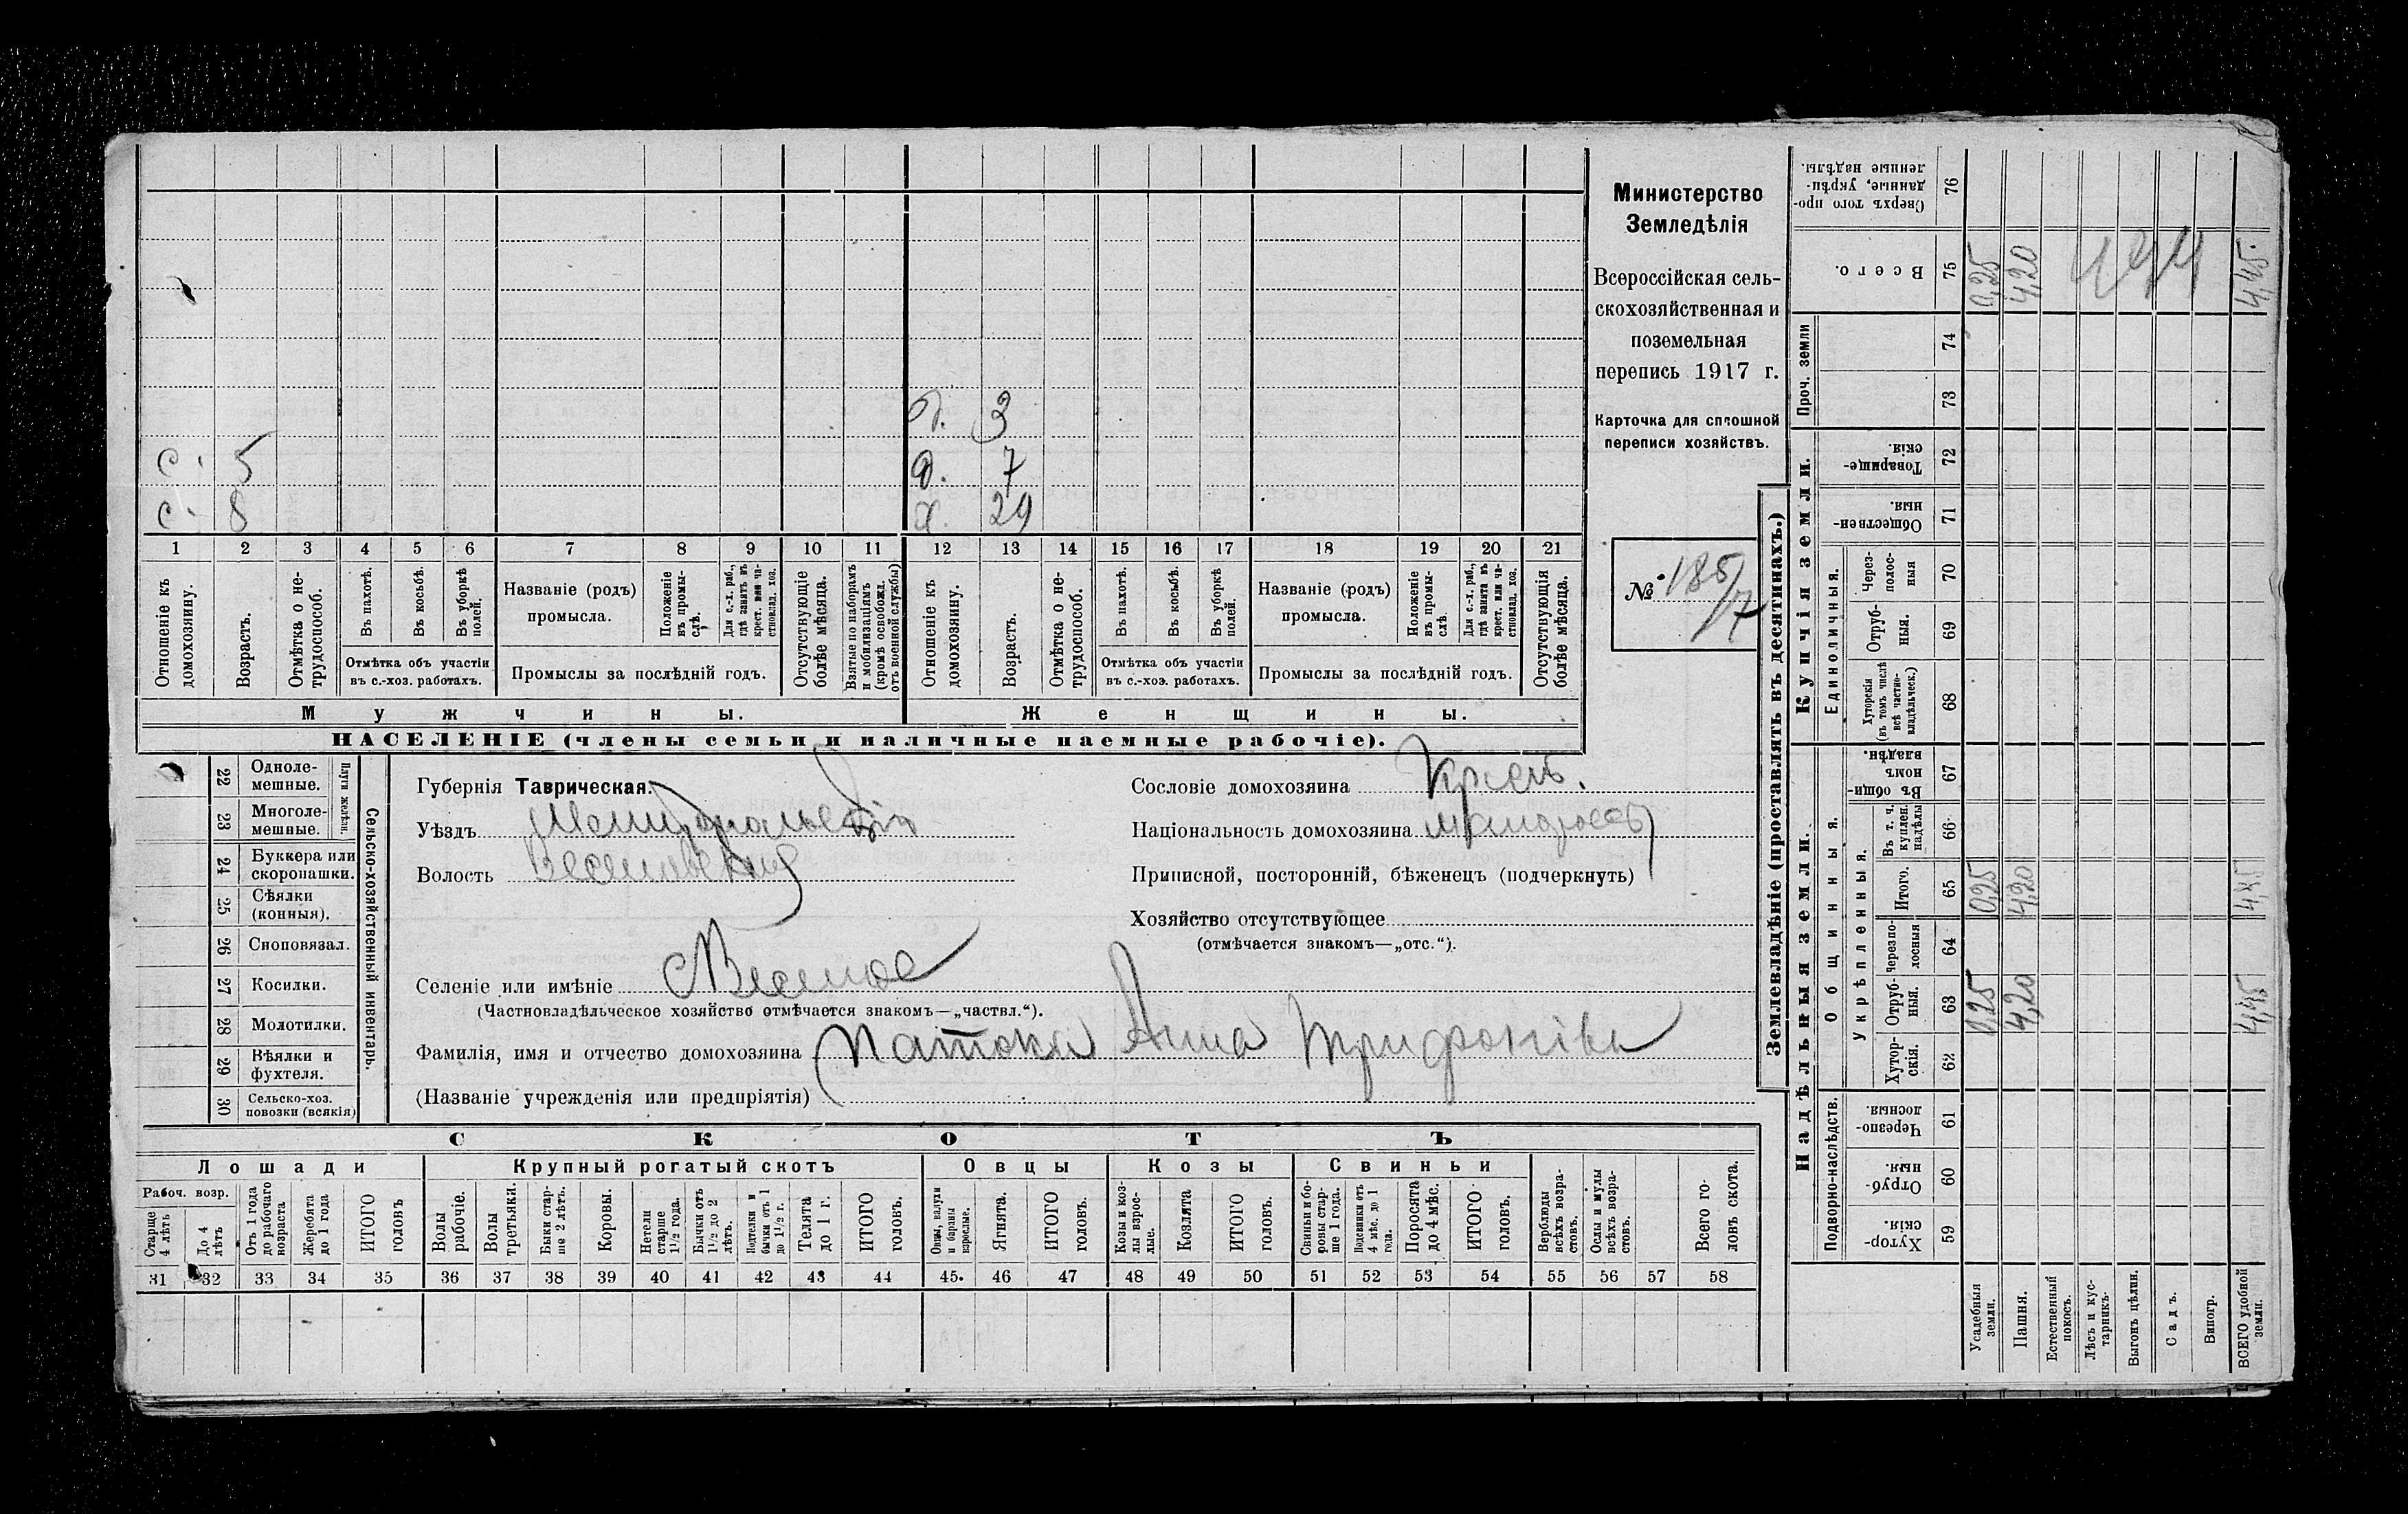 Министерство
Земледѣлія
Всероссійская сель-
скохозяйственная и
поземельная
перепись 1917 г.
Карточка для сплошной
переписи хозяйствъ.
№ 185/7
д. 3
с. 5 д. 7
с. 8 х. 29
1 2 3 4 5 6 7 8 9 10 11 12 13 14 15 16 17 18 19 20 21
Отношеніе къ домохозяину.
Возрастъ.
Отмѣтка о не-трудоспособ.
Въ пахотѣ.
Въ косьбѣ.
Въ уборкѣ полей.
Отмѣтка объ участіи въ с.-хоз. работахъ.
Названіе (родъ) промысла.
Положеніе въ промы-слѣ.
Для с.-х. раб., гдѣ занятъ въ крест. или ча-стновлад. хоз.
Промыслы за послѣдній годъ.
Отсутствующіе болѣе мѣсяца.
Взятые по наборамъ и мобилизаціямъ (кромѣ освобожд. отъ военной службы)
Отношеніе къ домохозяину.
Возрастъ.
Отмѣтка о не-трудоспособ.
Въ пахотѣ.
Въ косьбѣ.
Въ уборкѣ полей.
Отмѣтка объ участіи въ с.-хоз. работахъ.
Названіе (родъ) промысла.
Положеніе въ промы-слѣ
Для с.-х. раб., гдѣ занята въ крест. или ча-стновлад. хоз.
Промыслы за послѣдній годъ.
Отсутствующія болѣе мѣсяца.
Мужчины. Женщины.
НАСЕЛЕНІЕ (члены семьи и наличные наемные рабочіе).
Сельско-хозяйственный инвентарь.
Плуги желѣзн.
22 Одноле-мешные.
23 Многоле-мешные.
24 Буккера или скоропашки.
25 Сѣялки (конныя).
26 Сноповязал.
27 Косилки.
28 Молотилки.
29 Вѣялки и фухтеля.
30 Сельско-хоз. повозки (всякія)
Губернія Таврическая.
Уѣздъ Мелитопольскій
Волость Веселовская
Селеніе или имѣніе Веселое
(Частновладѣльческое хозяйство отмѣчается знакомъ—„частвл.“).
Фамилія, имя и отчество домохозяина Патока Анна Трифонівн
(Названіе учрежденія или предпріятія)
Сословіе домохозяина Крест.
Національность домохозяина малоросс
Приписной, посторонній, бѣженецъ (подчеркнуть)
Хозяйство отсутствующее
(отмѣчается знакомъ—„отс.“).
СКОТЪ
Лошади Крупный рогатый скотъ Овцы Козы Свиньи
Рабоч. возр.
Старше 4 лѣтъ
До 4 лѣтъ
Отъ 1 года до рабочаго возраста
Жеребята до 1 года
ИТОГО головъ
Волы рабочіе.
Волы третьяки.
Быки стар-ше 2 лѣтъ.
Коровы.
Нетели старше 1½ года.
Бычки отъ 1½ до 2 лѣтъ.
Подтелки и бычки отъ 1 до 1½ г.
Телята до 1 г.
ИТОГО головъ.
Овцы, валухи и бараны взрослые.
Ягнята.
ИТОГО головъ.
Козы и коз-лы взрос-лые.
Козлята
ИТОГО головъ.
Свиньи и бо-ровы стар-ше 1 года.
Подсвинки отъ 4 мѣс. до 1 года.
Поросята до 4 мѣс.
ИТОГО головъ.
Верблюды всѣхъ возра-стовъ.
Ослы и мулы всѣхъ возра-стовъ.
Всего го-ловъ скота.
31 32 33 34 35 36 37 38 39 40 41 42 43 44 45 46 47 48 49 50 51 52 53 54 55 56 57 58
Землевладѣніе (проставлять въ десятинахъ.)
Надѣльныя земли. Купчія земли. Проч. земли
Подворно-наслѣдств. Общинныя.
Укрѣпленныя. Единоличныя.
Хутор-скія. 59
Отруб-ныя. 60
Черезпо-лосныя. 61
Хутор-скія. 62
Отруб-ныя. 63 0,25 4,20 4,45
Черезпо-лосныя 64
Итого. 65 0,25 4,20 4,45
Въ т. ч. куплен. надѣлы 66
Въ общи-номъ владѣн. 67
Хуторскія (въ томъ числѣ всѣ частно-владѣльческ.) 68
Отруб-ныя. 69
Через-полос-ныя 70
Обществен-ныя 71
Товарище-скія. 72
73
74
Всего. 75 0,25 4,20 4,45
Сверхъ того про-данные, укрѣп-ленные надѣлы. 76
Усадебныя земли.
Пашня.
Естественный покосъ.
Лѣсъ и кус-тарникъ.
Выгонъ цѣлин.
Садъ.
Виногр.
ВСЕГО удобной земли.